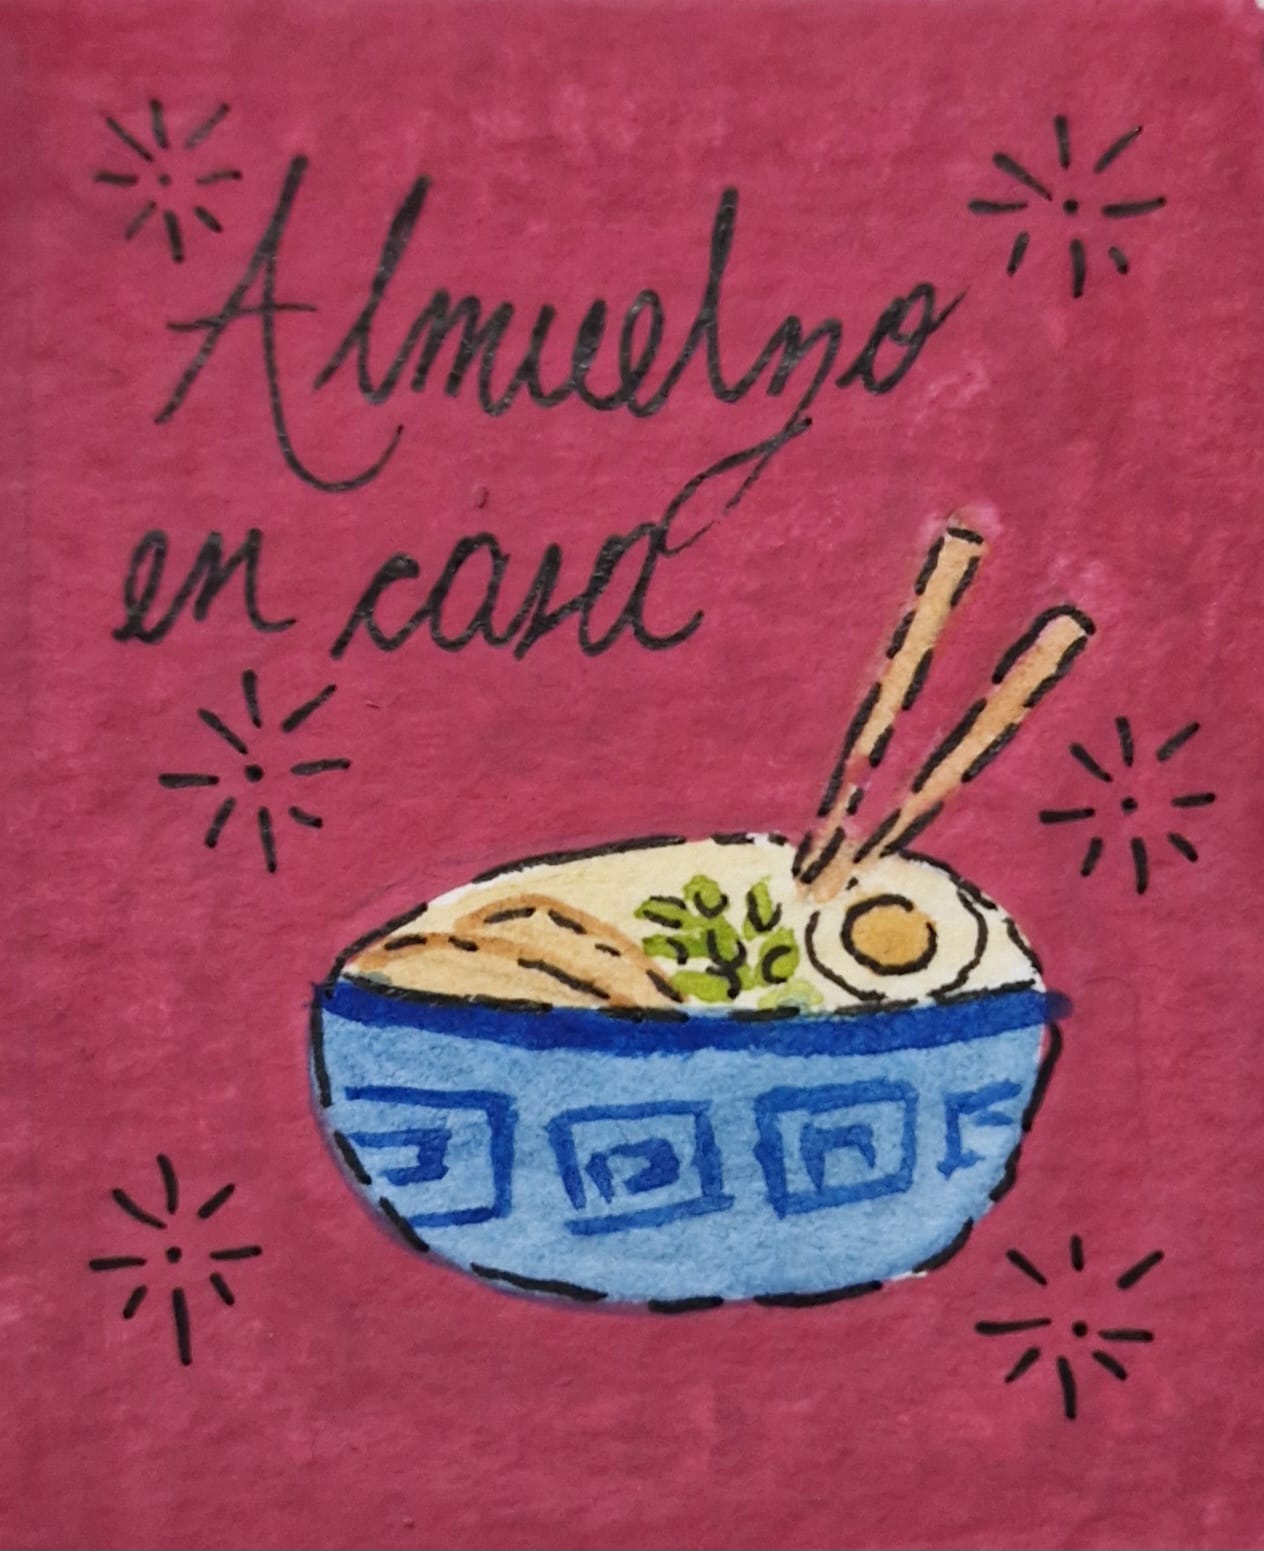 Almuelzo
en casa